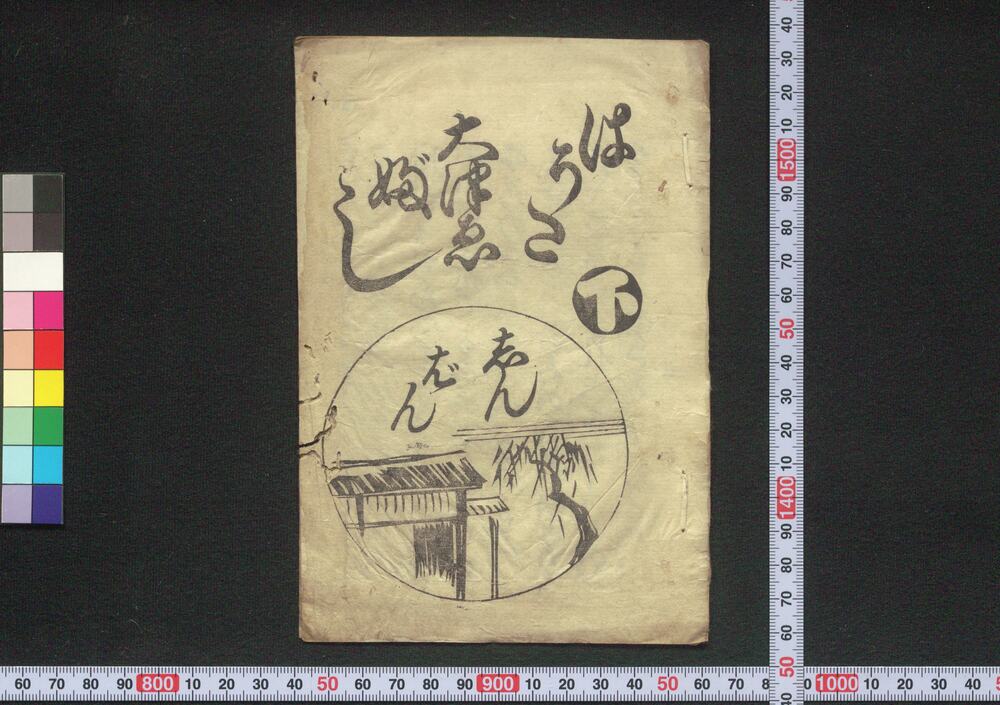 はうた
下
大津ゑ
ぶし
志ん
ばん
40 30 20 10 1500 90 80 70 60 50 40 30 20 10 1400 90 80 70 60 50 40
60 70 80 90 800 10 20 30 40 50 60 70 80 90 900 10 20 30 40 50 60 70 8 0 1000 10 20 30 40 5